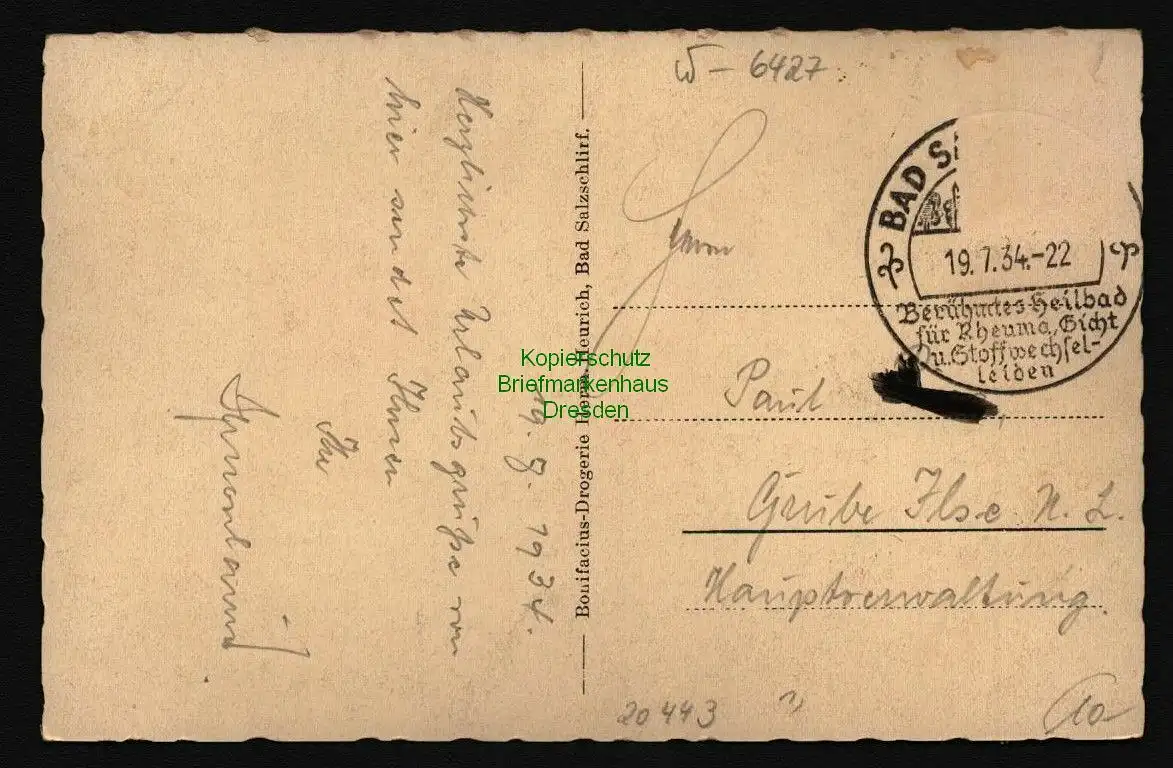 W - 6427
19.7.1934.
Herzlichste Urlaubsgrüße von
hier sendet Ihnen
Ihr
Bonifacius-Drogerie Herm. Heurich, Bad Salzschlirf.
BAD S
19.7.34.-22
Berühmtes Heilbad
für Rheuma, Gicht
u. Stoffwechsel-
leiden
Herrn
Paul
Grube Ilse N. L.
Hauptverwaltung.
20443
Kopierschutz
Briefmarkenhaus
Dresden